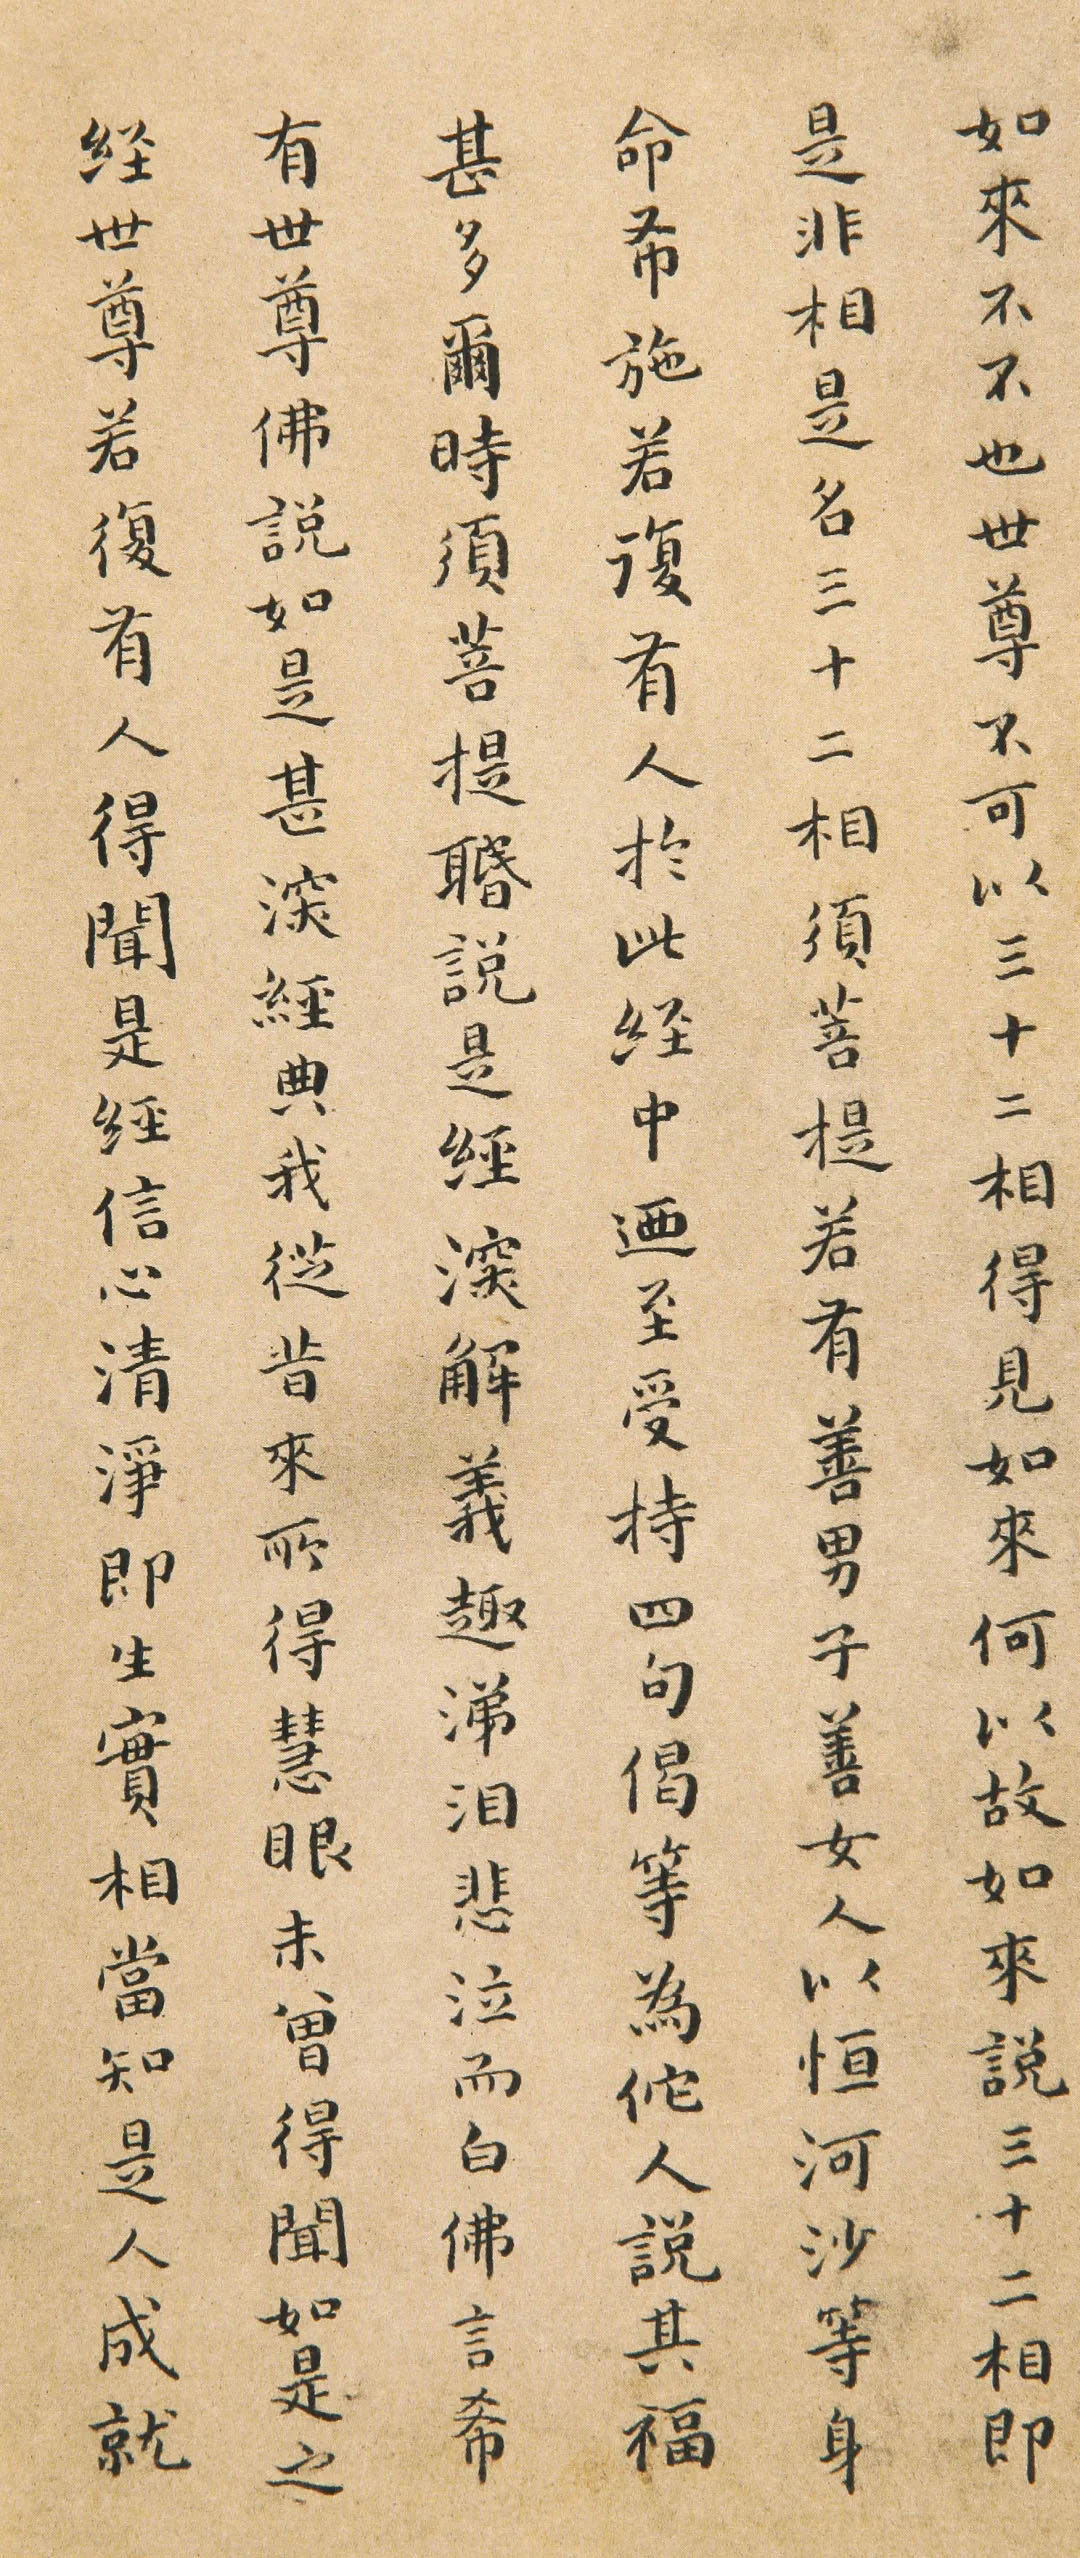 如來不不也世尊不可以三十二相得見如來何以故如來説三十二相即
是非相是名三十二相須菩提若有善男子善女人以恒河沙等身
命布施若復有人於此経中廼至受持四句偈等為佗人説其福
甚多爾時須菩提聞説是經深解義趣涕泪悲泣而白佛言希
有世尊佛説如是甚深經典我從昔來所得慧眼未曽得聞如是之
経世尊若復有人得聞是經信心清淨即生實相當知是人成就